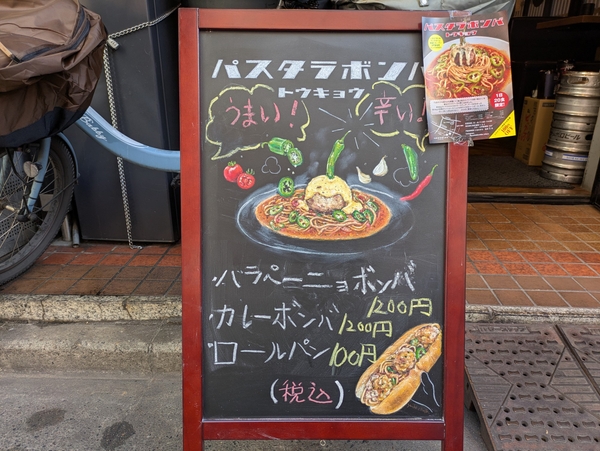 パスタラボンバ
トウキョウ
うまい!
辛い!
ハラペーニョボンバ
1200円
カレーボンバ 1200円
ロールパン 100円
(税込)
パスタラボンバ
トウキョウ
1日
20食
限定!